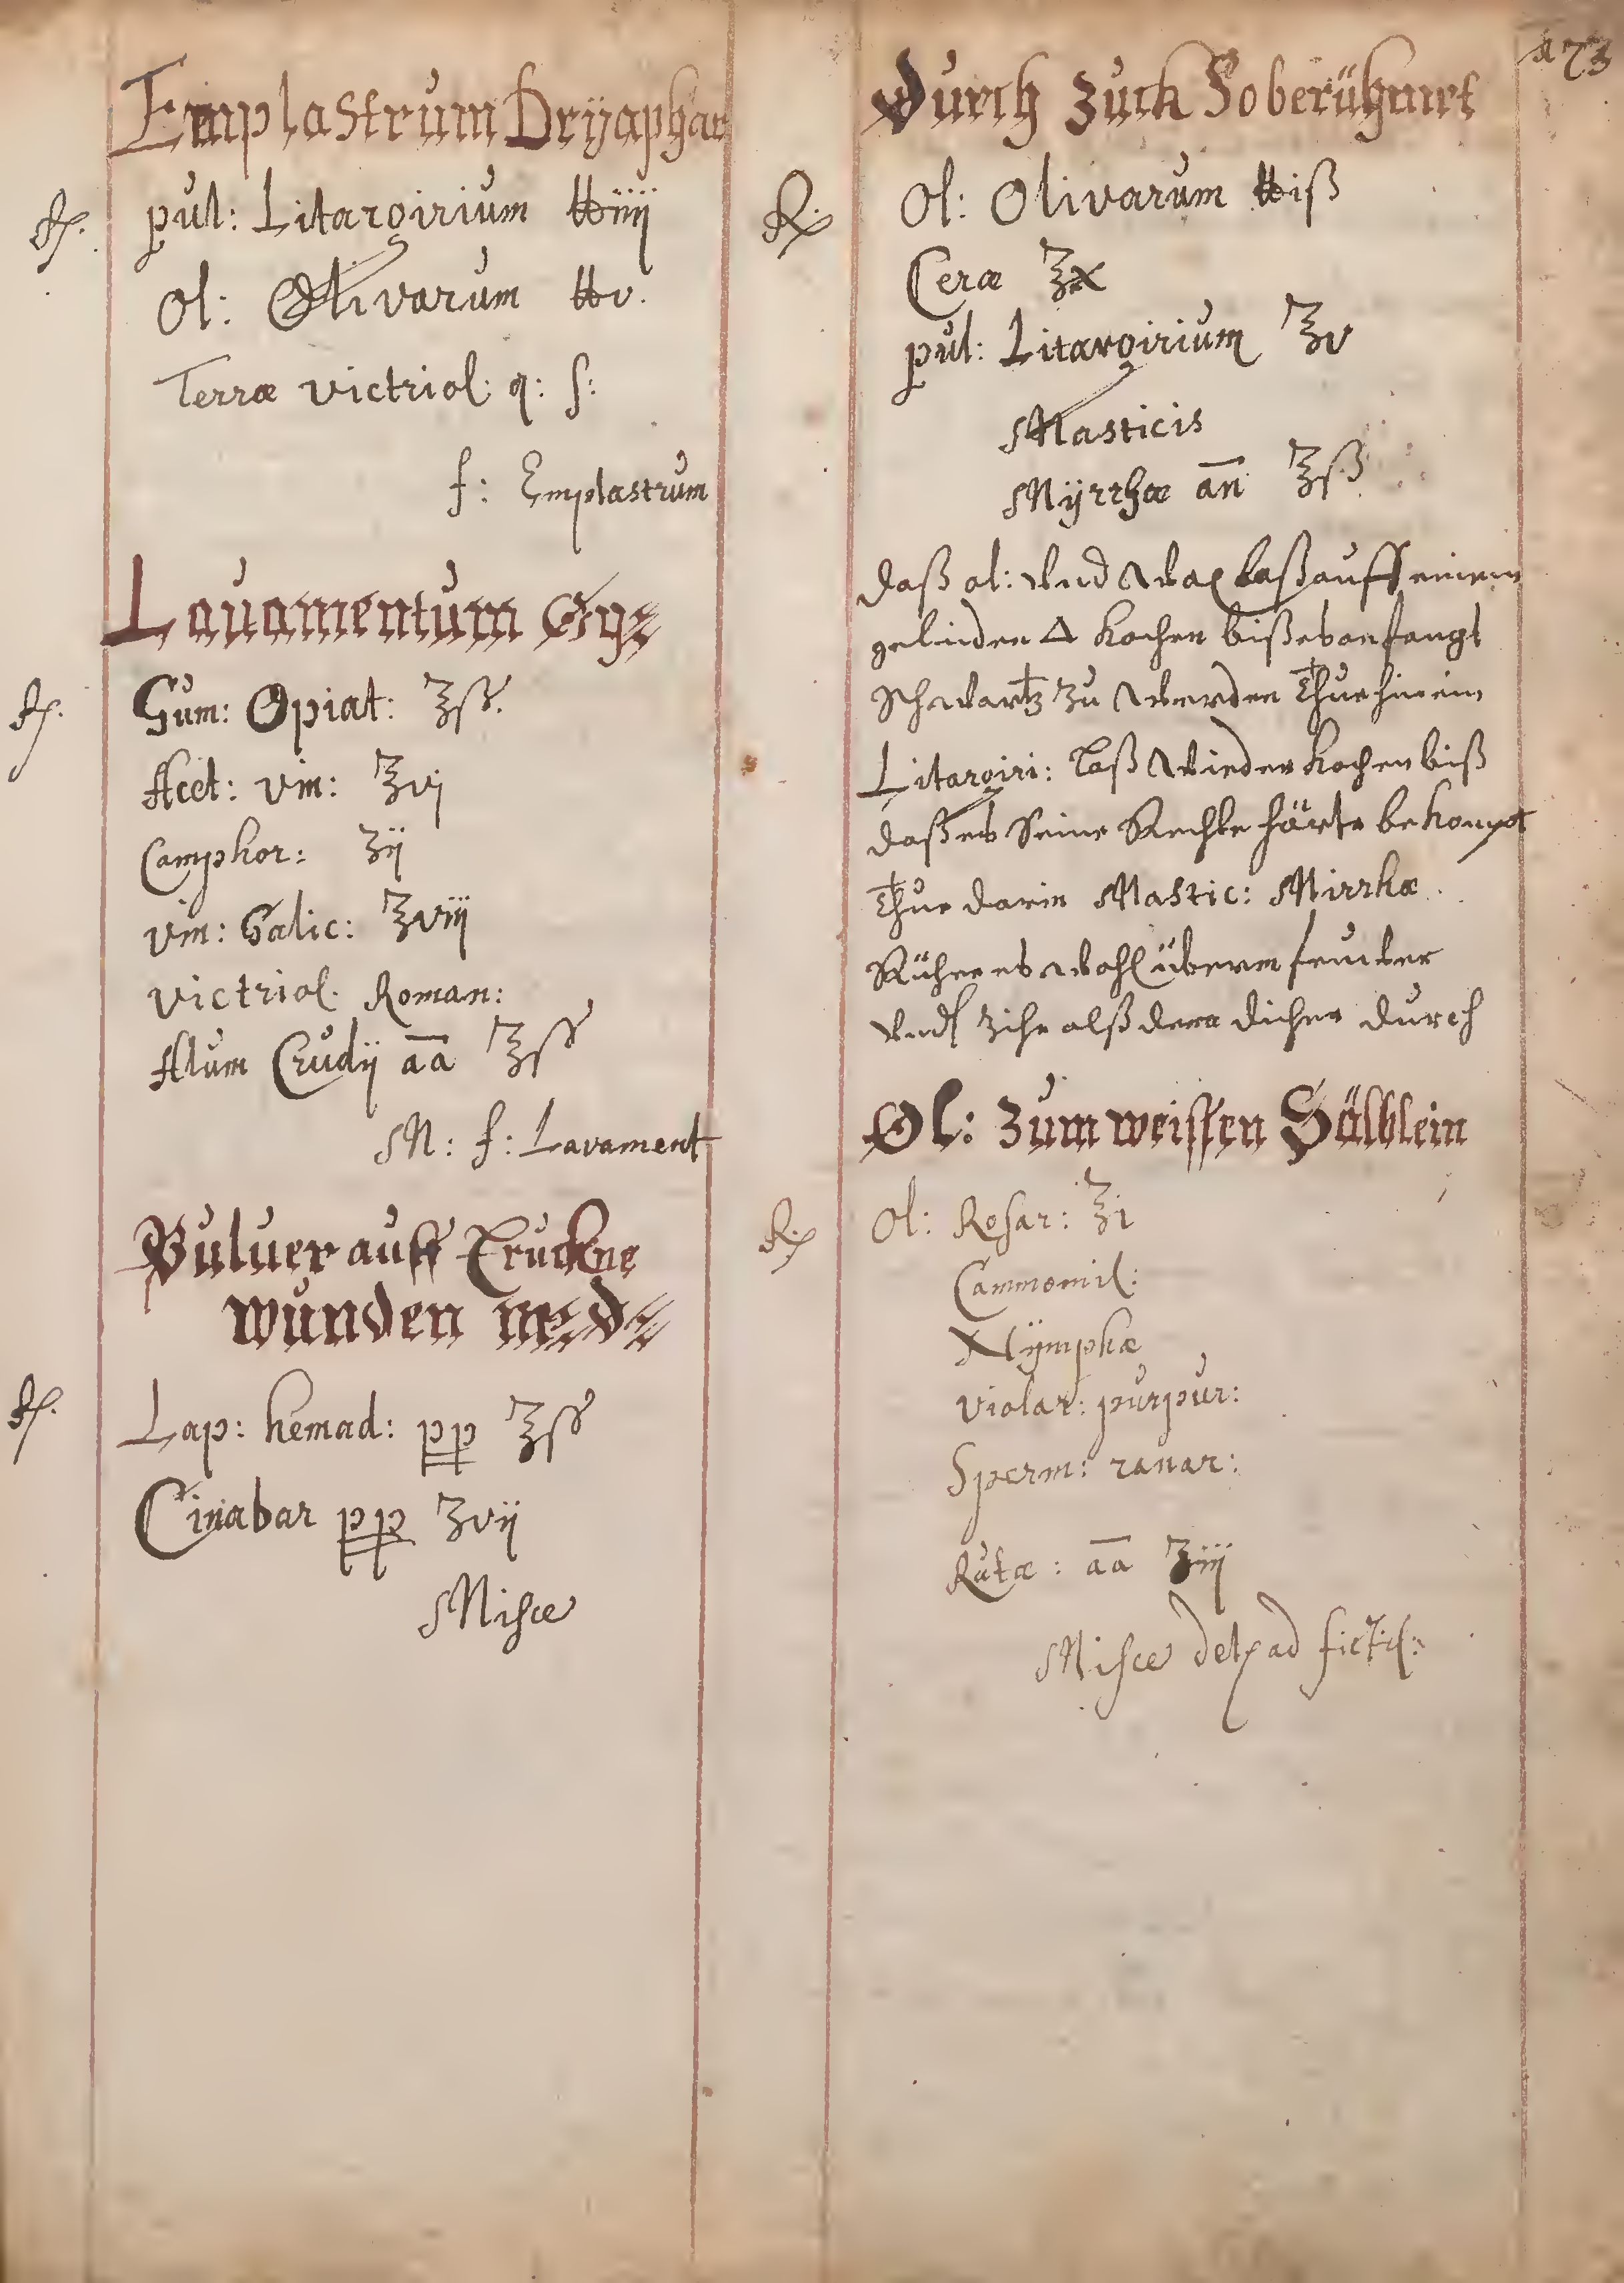 Emplastrum Dryaphan
℞. pul: Litargirium ℔iiij
Ol: Olivarum ℔v.
Terræ victriol: q: s:
f: Emplastrum
Lavamentum
℞. Gum: Opiat: ℥ß.
Acet: vin: ℥vj
Camphor: ʒij
vin: Galic: ℥viij
victriol. Roman:
Alum Crudij aa ℥ß
M: f: Lavament
Puluer auff Truckne
wunden
℞. Lap: hemad: pp ℥ß
Cinabar pp ʒvij
Misce
173
Durch Zuck So berühmt
℞. Ol: Olivarum ℔iß
Ceræ ℥x
pul: Litargirium ℥v
Masticis
Myrrhæ an ℥ß
Daß ol: und Wax laß auff einem
gelinden △ kochen biß es anfangt
Schwartz zu werden Thue hinein
Litargiri: Laß wieder kochen biß
daß es Seine Rechte härte bekompt
Thue darin Mastic: Mirrhæ
Rühre es wohl überm feuwer
Und zihe alß dann dicher durch
Ol: Zum weissen Sälblein
℞. Ol: Rosar: ℥i
Cammomil:
Nymphæ
violar: purpur:
Sperm: ranar:
Rutæ: aa ʒiij
Misce det ad fictil: